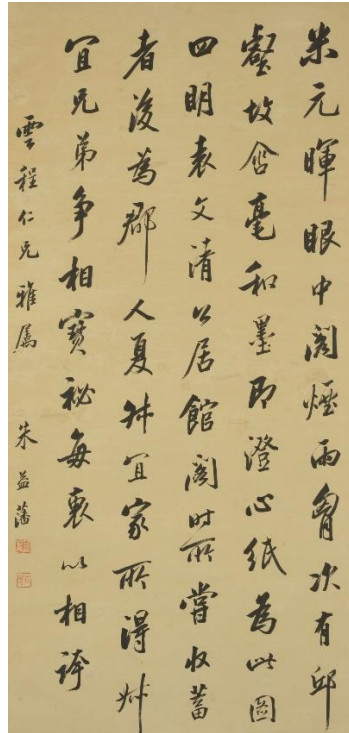 米元暉眼中閱煙雨胷次有邱
壑故含毫和墨即澄心紙為此圖
四明袁文清公居館閣時所嘗收蓄
者後為郡人夏叔宜家所得叔
宜兄弟爭相寶祕每以相誇
雲程仁兄雅屬 朱益藩